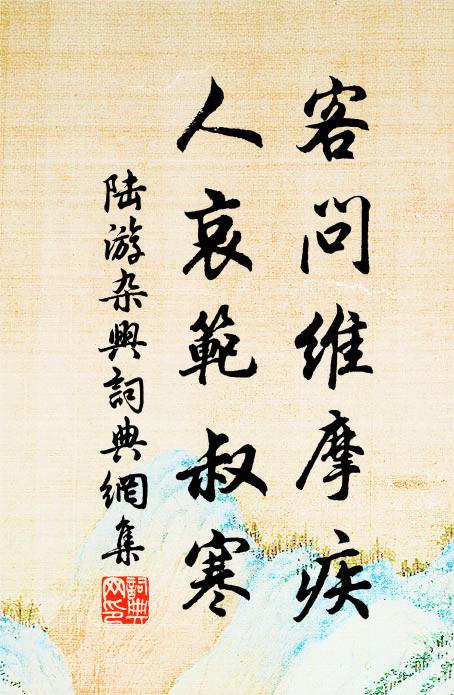 客問維摩疾
人哀範叔寒
陆游杂興詞典網集
詞典網印